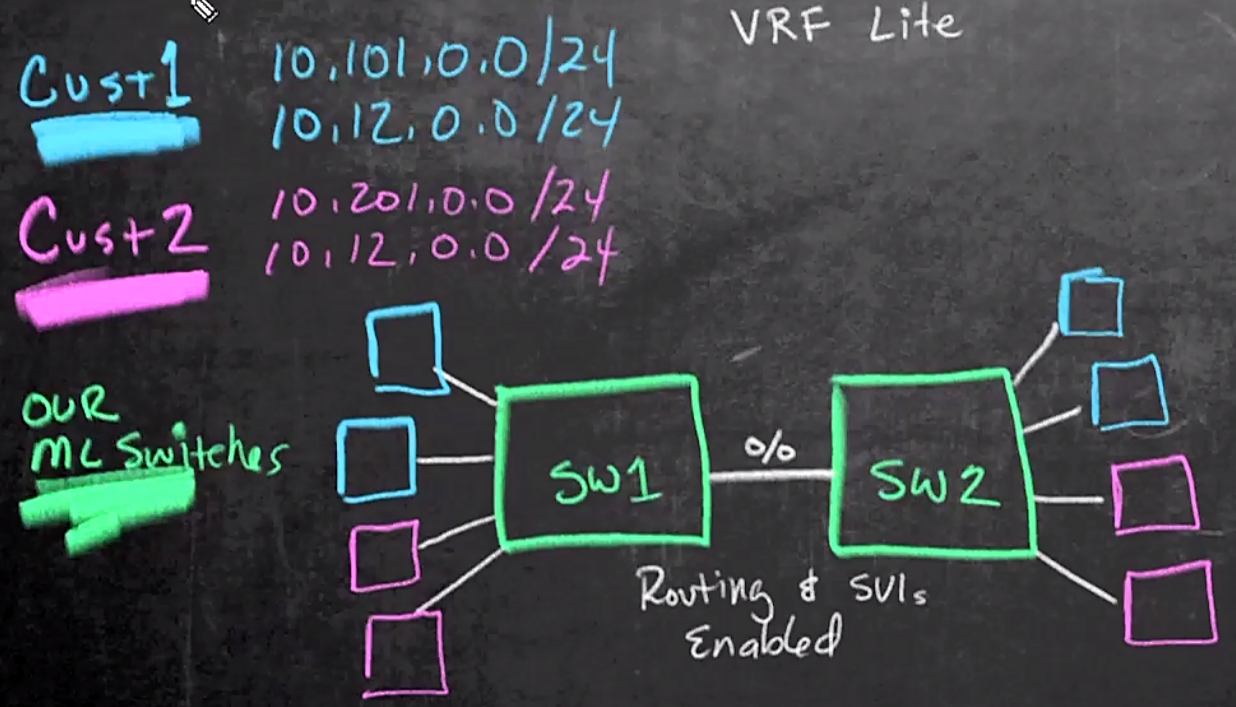 VRF Lite
Cust1
10.101.0.0/24
10.12.0.0/24
Cust2
10.201.0.0/24
10.12.0.0/24
OUR
ML Switches
SW1
0/0
SW2
Routing & SVIs
Enabled